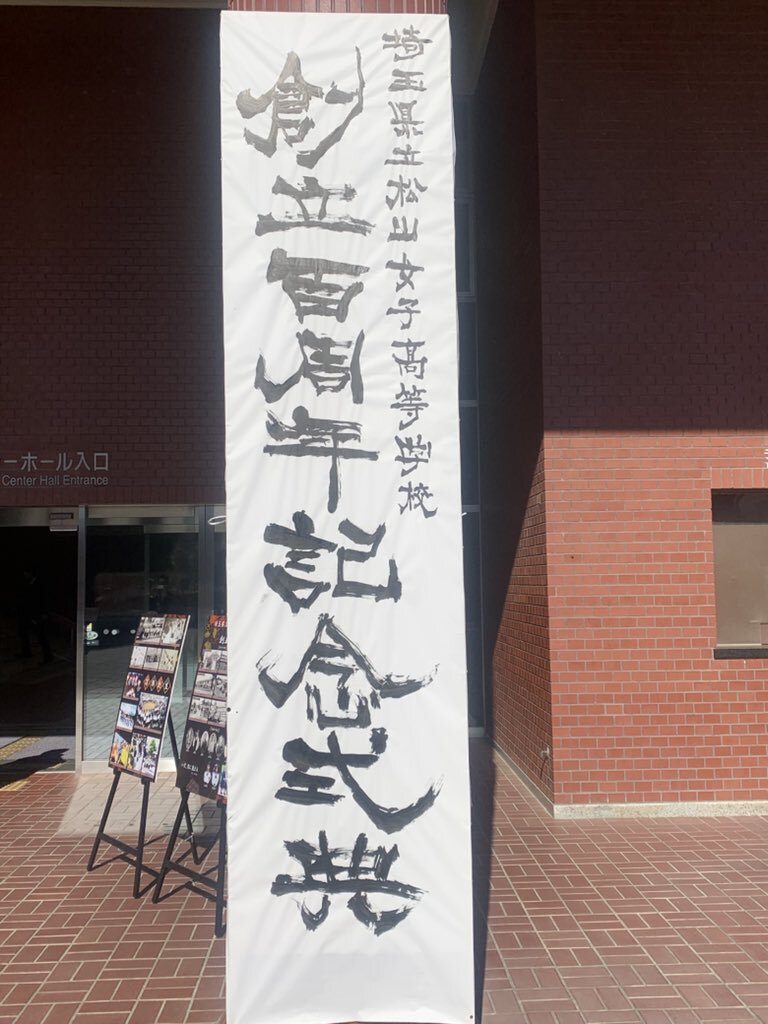 埼玉県立松山女子高等学校
創立百周年記念式典
ーホール入口
Center Hall Entrance